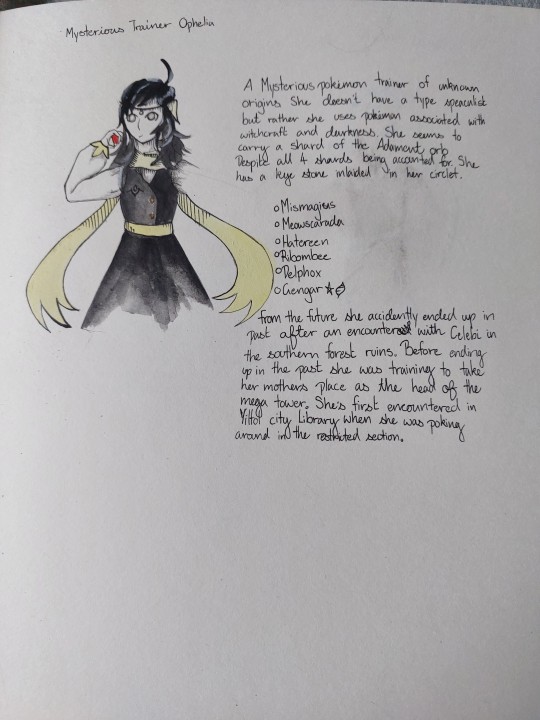 Mysterious Trainer Ophelia
A Mysterious pokémon trainer of unknown
origins She doesn't have a type specialist
but rather she uses pokémon associated with
witchcraft and darkness. She seems to
carry a shard of the Adament orb
Despite all 4 shards being accounted for. She
has a keye stone inlaided in her circlet.
○Mismagius
○Meowscarada
○Hatereen
○Ribombee
○Delphox
○Gengar
from the future she accidently ended up in
past after an encountered with Celebi in
the southern forest ruins. Before ending
up in the past she was training to take
her mothers place as the head of the
mega tower. She's first encountered in
city Library when she was poking
around in the restricted section.